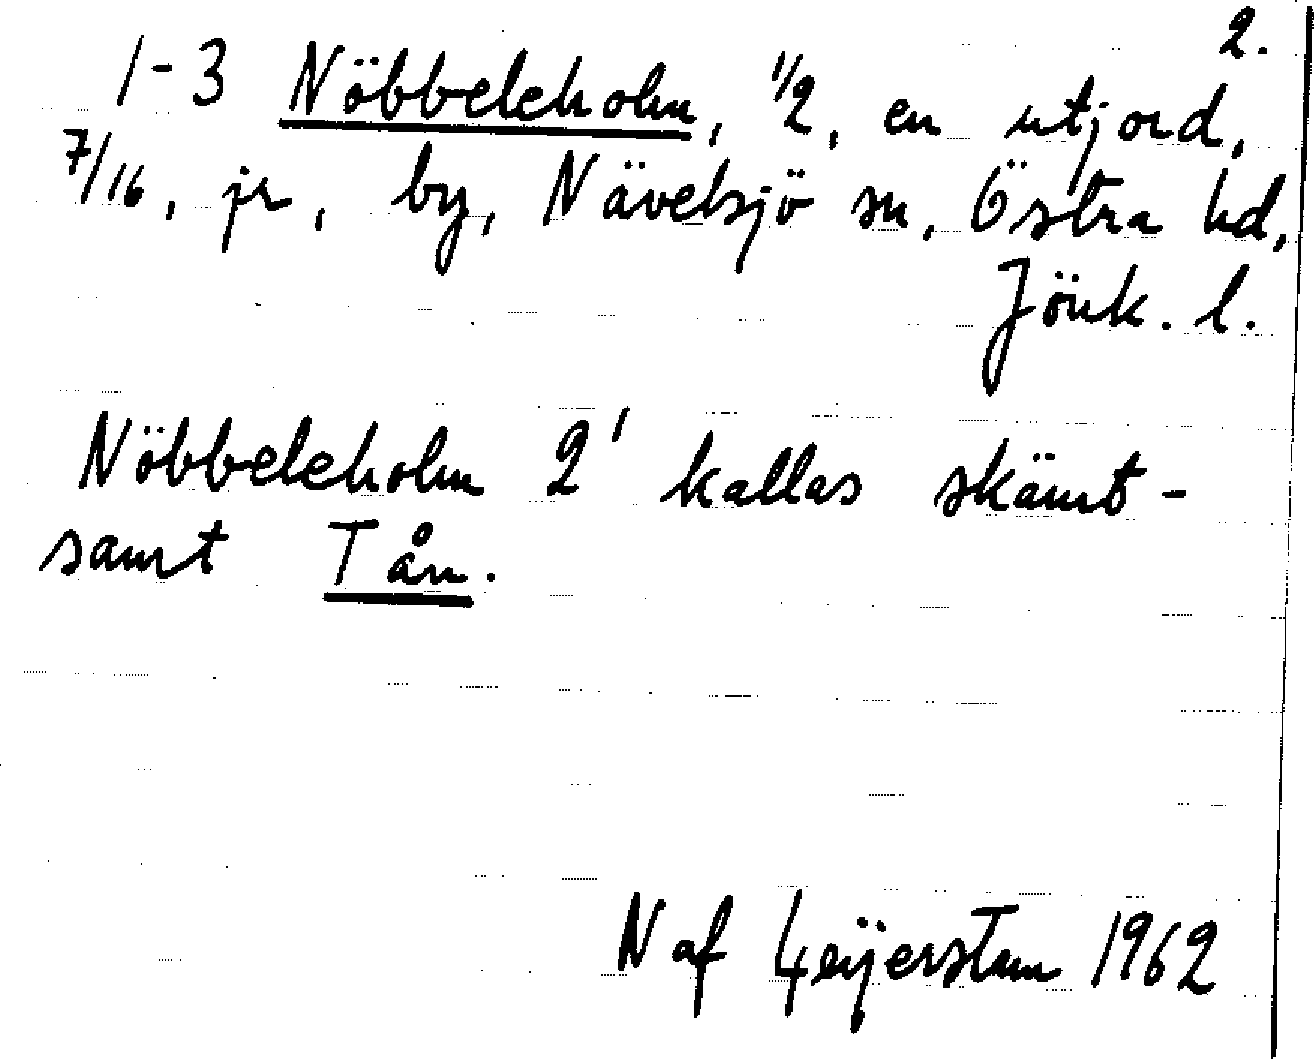 2.
1-3 Nöbbeleholm, 1/2, en utjord,
7/16, jr, by, Nävelsjö sn, Östra hd,
Jönk. l.
Nöbbeleholm 2' kallas skämt-
samt Tån.
N af Geijerstam 1962